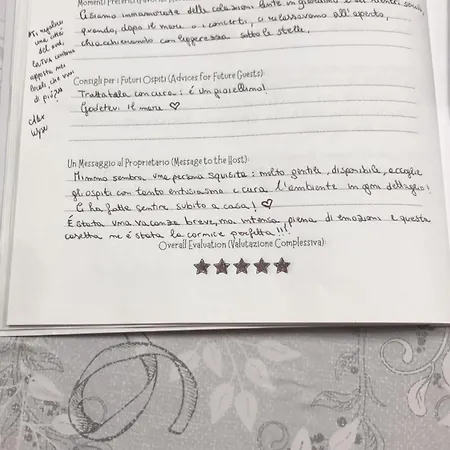 Momenti Preferiti
Ci siamo innamorate delle colazioni fatte in giardino e dei rientri serali,
quando, dopo il mare o i concerti, ci rilassavamo all'aperto,
chiacchierando con leggerezza sotto le stelle.
Consigli per i Futuri Ospiti (Advices for Future Guests):
Trattatela con cura! è un gioiellino!
Godetevi il mare ♡
Un Messaggio al Proprietario (Message to the Host):
Mimmo sembra una persona squisita: molto gentile, disponibile, accoglie
gli ospiti con tanto entusiasmo e cura l'ambiente in ogni dettaglio!
Ci ha fatte sentire subito a casa! ♡
È stata una vacanza breve, ma intensa, piena di emozioni e questa
casetta ne è stata la cornice perfetta!!!
Overall Evaluation (Valutazione Complessiva):
★★★★★